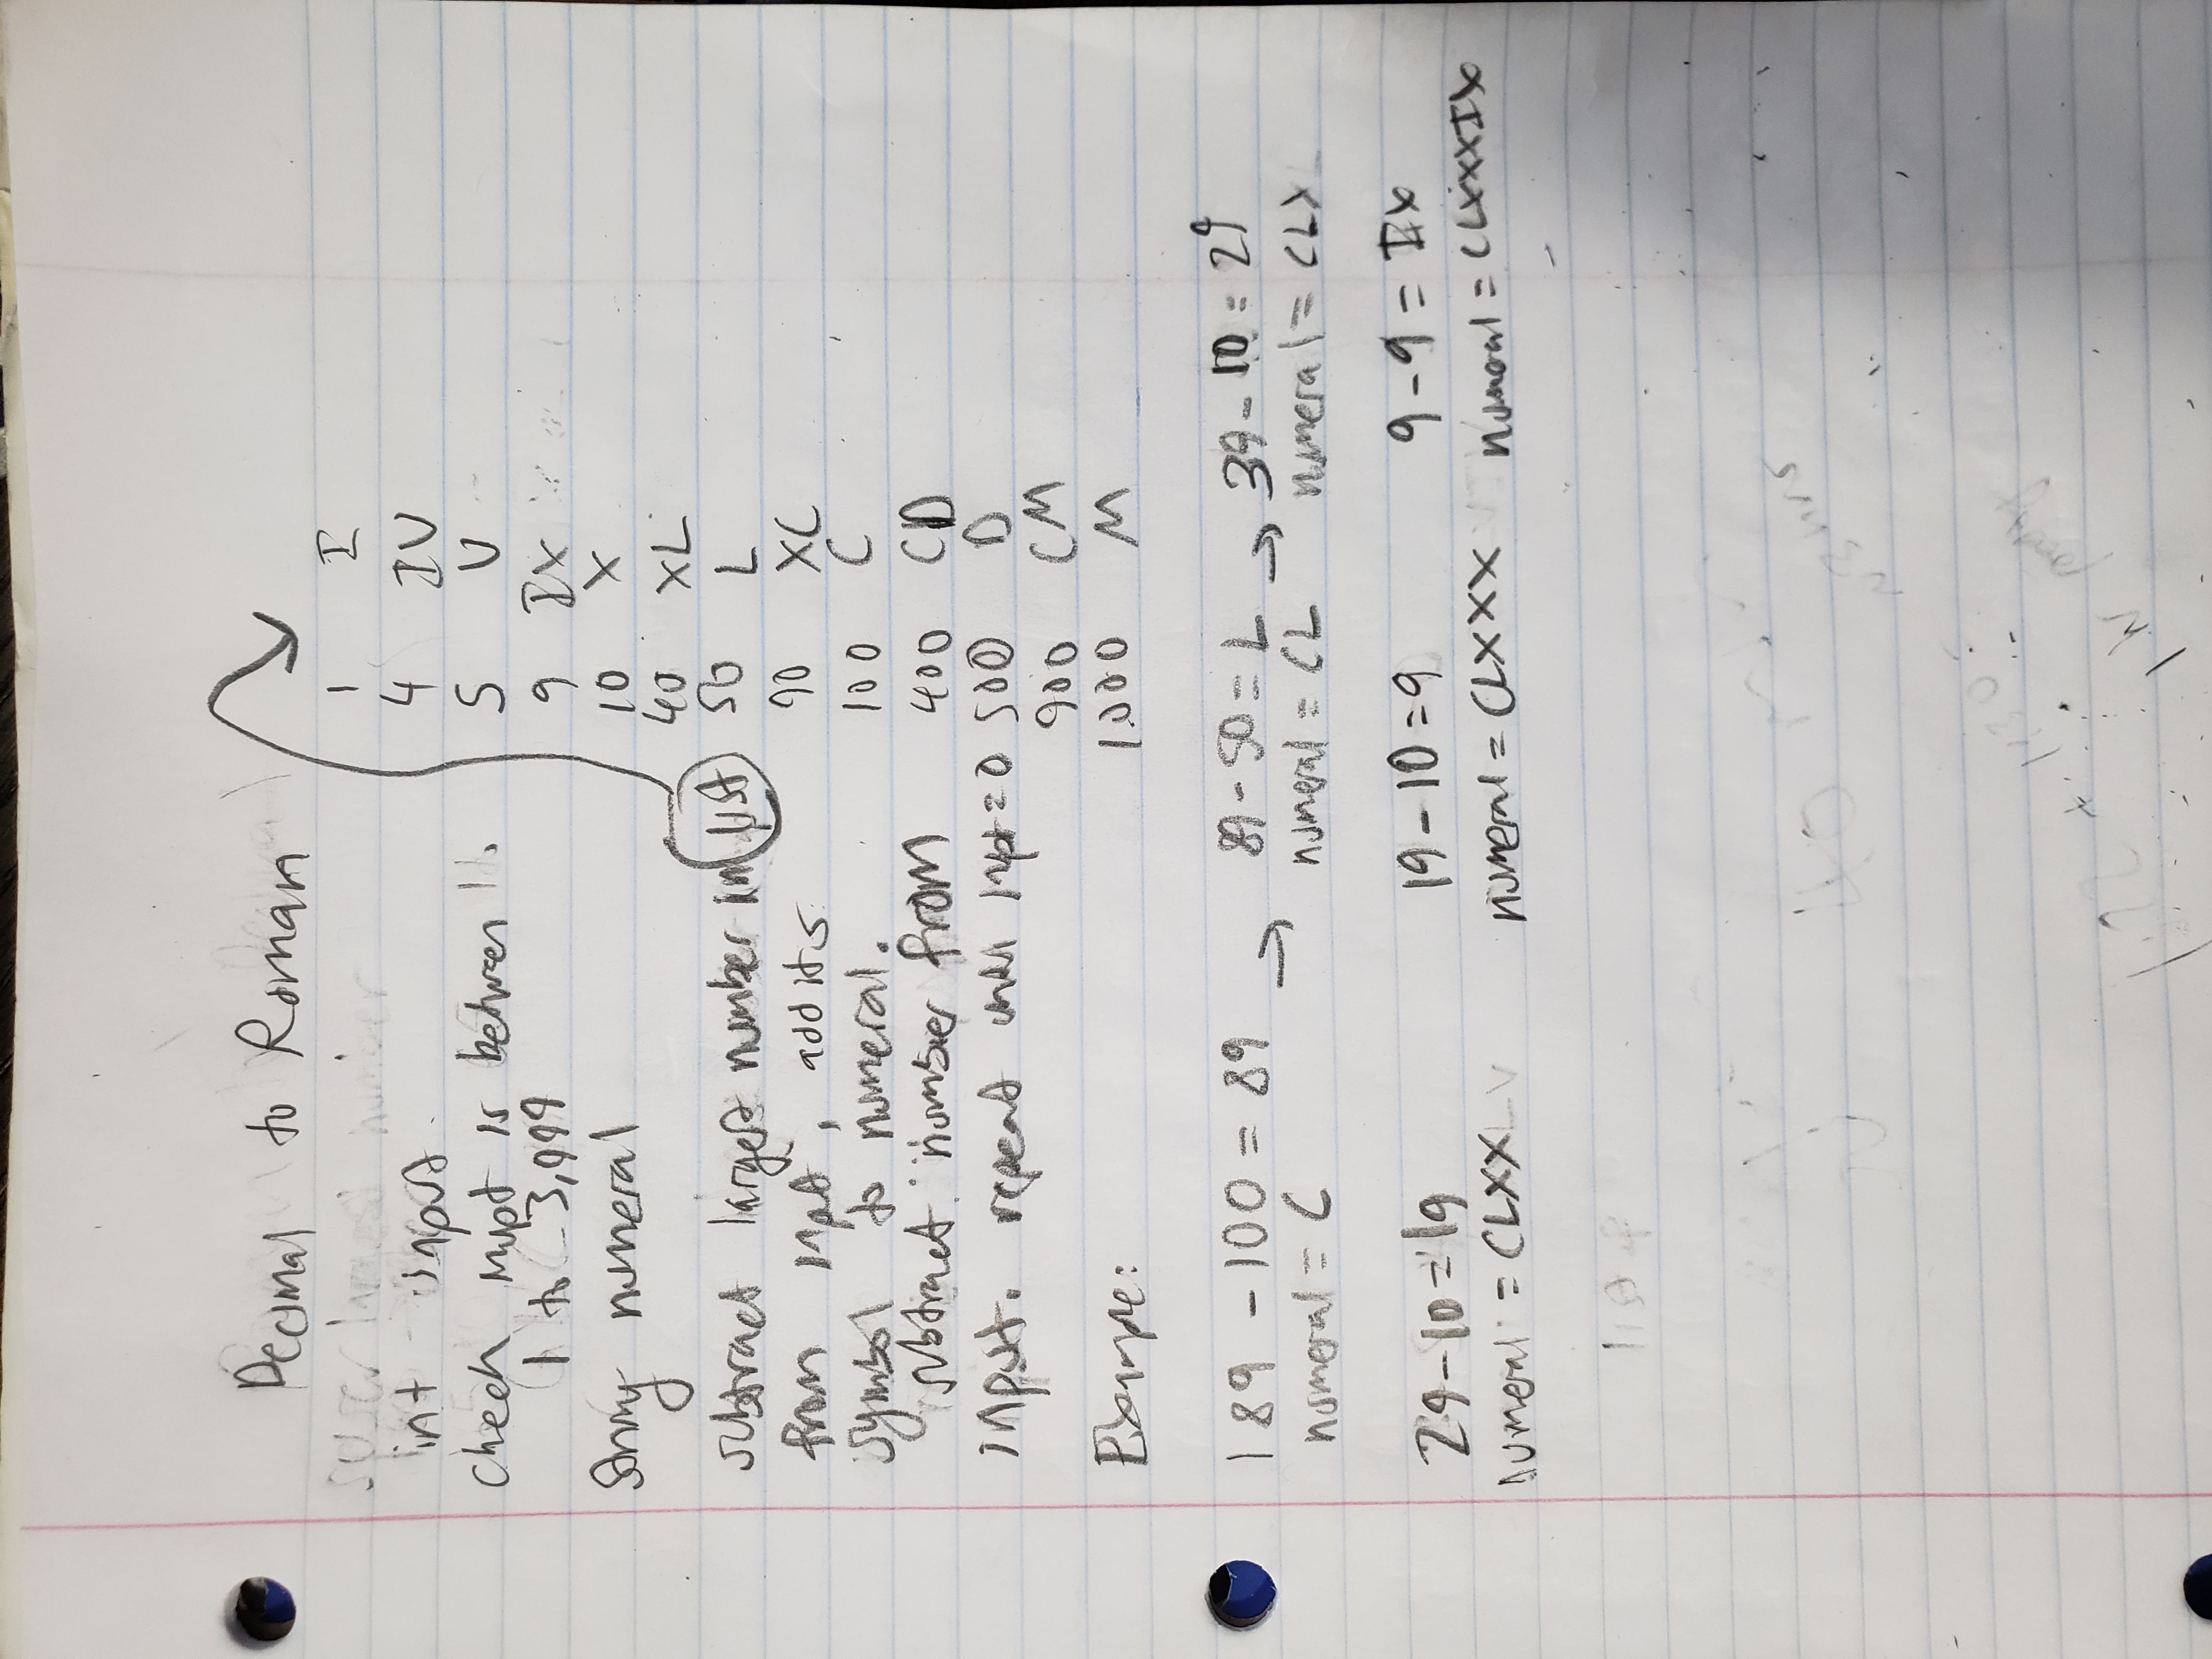 Decimal to Roman
int input
Check input is between
1 to 3,999
String numeral
subtract largest number in list
from input, add its
symbol to numeral.
subtract number from
input. repeat until input = 0
1 I
4 IV
5 V
9 IX
10 X
40 XL
50 L
90 XC
100 C
400 CD
500 D
900 CM
1000 M
Example:
189 - 100 = 89 → 89 - 50 = L → 39 - 10 = 29
numeral = C numeral = CL numeral = CLX
29 - 10 = 19 19 - 10 = 9 9 - 9 = IX
numeral = CLXX numeral = CLXXX numeral = CLXXXIX